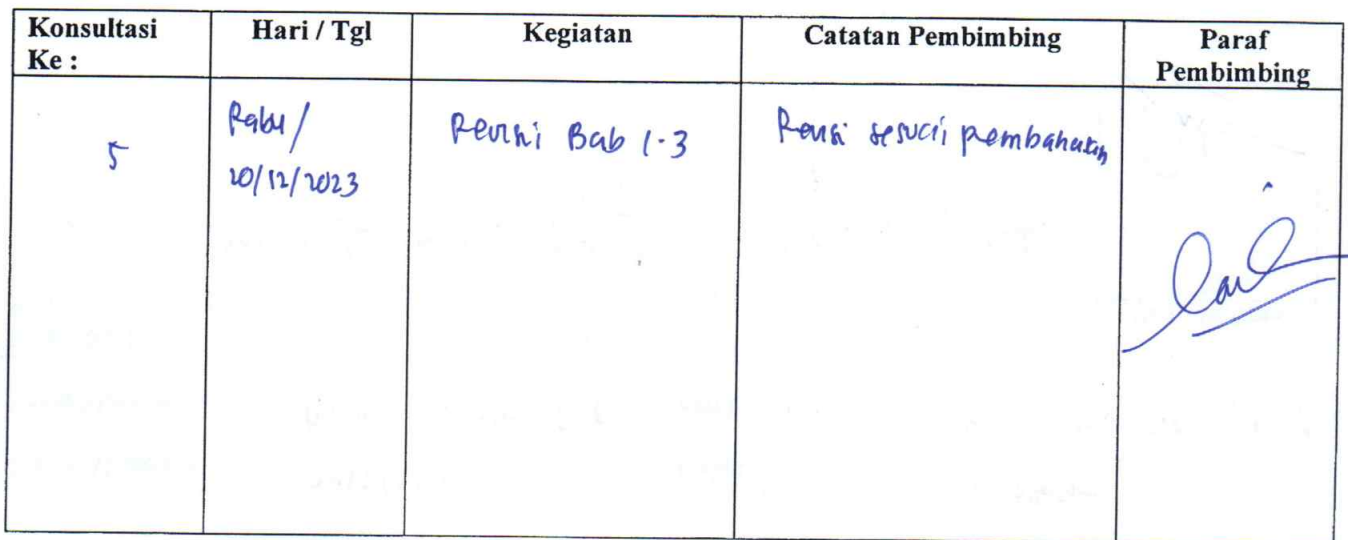 Konsultasi Ke :
Hari / Tgl
Kegiatan
Catatan Pembimbing
Paraf Pembimbing
5
Rabu /
20/12/2023
Revisi Bab 1-3
Revisi sesuai pembahasan